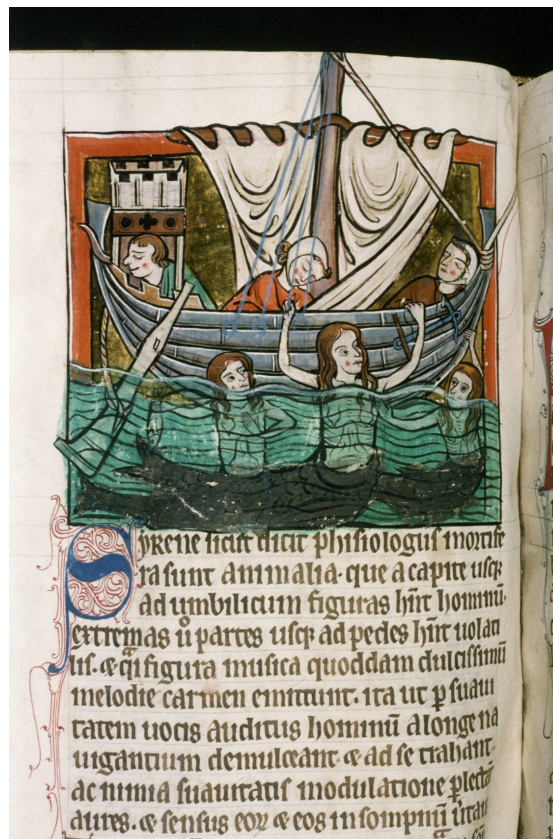 Syrene sicut dicit phisiologus mortife
ra sunt animalia. que a capite usqꝫ
ad umbilicum figuras hn̄t hominū.
extremas ů partes usqꝫ ad pedes hn̄t uolati
lis. ⁊ musica quoddam dulcissimū
melodie carmen emittunt. ita ut ꝑ suaui
tatem uocis auditus hominū a longe na
uigantium demulceant ⁊ ad se trahant.
ac nimia suauitatis modulatione
aures. ⁊ sensus eoꝝ ⁊ eos in sompnū